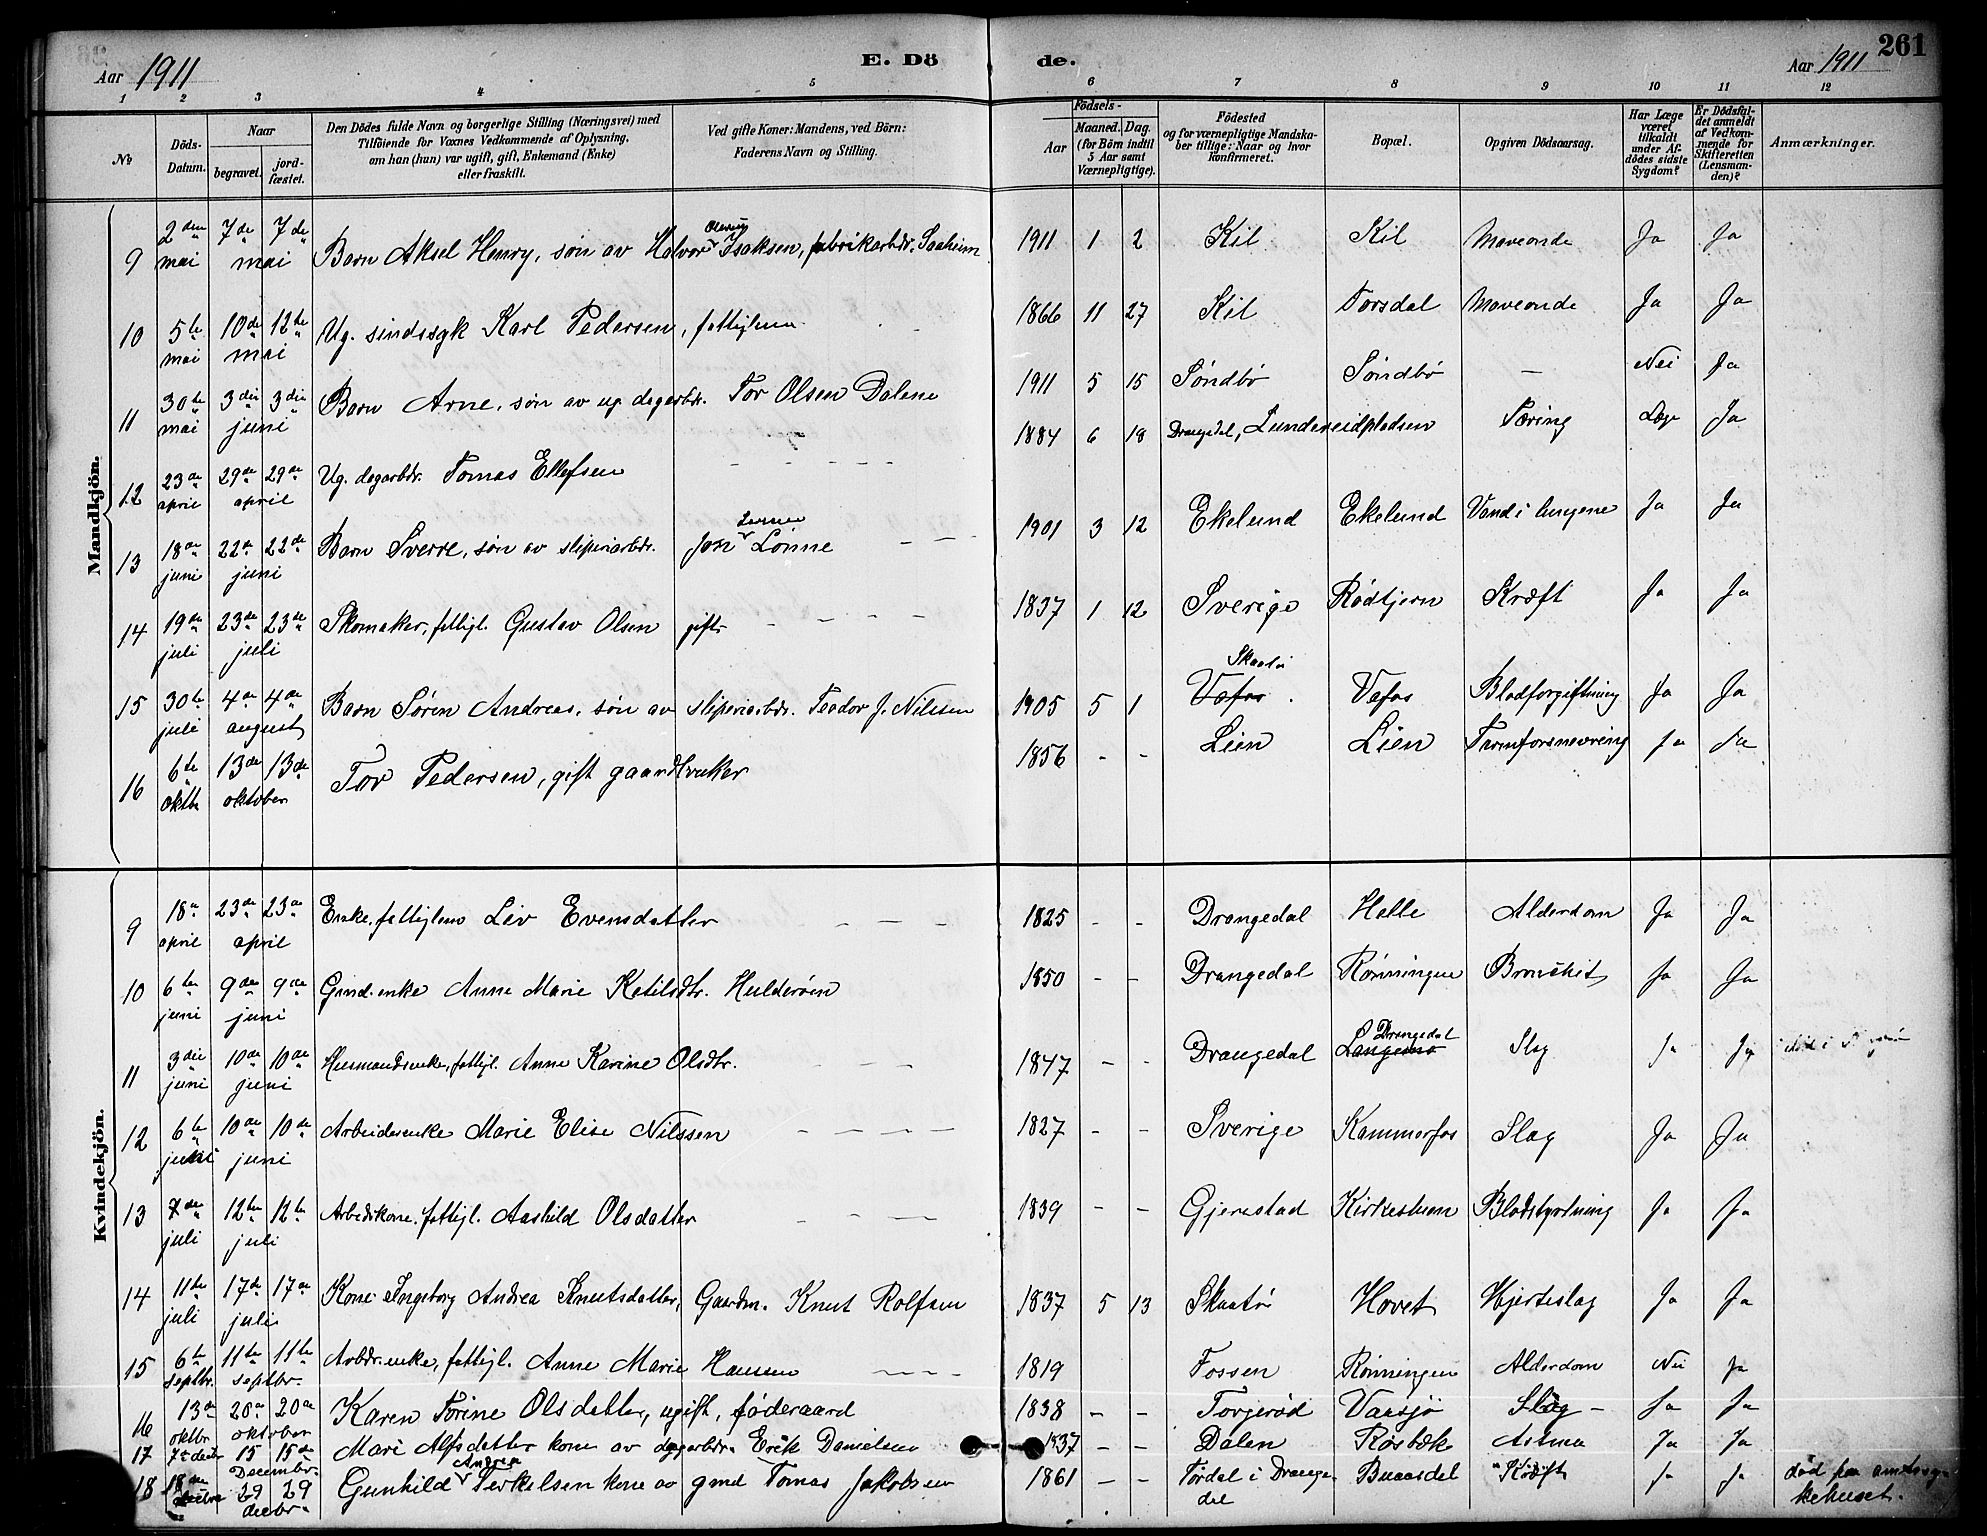 261
Aar 1911 E. Dö de. Aar 1911
1 2 3 4 5 6 7 8 9 10 11 12
No
Döds-Datum.
Naar
begravet.
jord-fæstet.
Den Dödes fulde Navn og borgerlige Stilling (Næringsvei) med
Tilföiende for Voxnes Vedkommende af Oplysning,
om han (hun) var ugift, gift, Enkemand (Enke)
eller fraskilt.
Ved gifte Koner: Mandens, ved Börn:
Faderens Navn og Stilling.
Födsels-
Aar
Maaned. Dag.
(for Börn indtil
5 Aar samt
Værnepligtige).
Födested
og for værnepligtige Mandska-
ber tillige: Naar og hvor
konfirmeret.
Bopæl.
Opgiven Dödsaarsag.
Har Læge
været
tilkaldt
under Af-
dödes sidste
Sygdom?
Er Dödsfal-
det anmeldt
af Vedkom-
mende for
Skifteretten
(Lensman-
den)?
Anmærkninger.
Mandkjön.
9 2den mai 7de 7de mai Barn Aksel Henry, søn av Halvor Isaksen, fabrikarbdr. Saaheim 1911 1 2 Kil Kil Maveonde Ja Ja
10 5te mai 10de 12te mai Ug. sindssyk Karl Pedersen, fattiglem 1866 11 27 Kil Torsdal Maveonde Ja Ja
11 30te mai 3die 3die juni Barn Arne, søn av ug. dagarbdr. Tor Olsen Dalene 1911 5 15 Søndbø Søndbø — Nei Ja
12 23de april 29de 29de april Ug. dagarbdr. Tomas Ellefsen 1884 6 18 Drangedal, Lundereidpladsen Tæring Læge Ja
13 18de juni 22de 22de juni Barn Sverre, søn av sliperiarbdr. Jon Lønne 1901 3 12 Ekelund Ekelund Vand i lungene Ja Ja
14 19de juli 23de 23de juli Skomaker, fattigl. Gustav Olsen gift 1837 1 12 Sverige Rødtjern Kræft Ja Ja
15 30te juli 4de 4de august Barn Søren Andreas, søn av sliperiarbdr. Teodor J. Nilssen 1905 5 1 Skaatø Vafos Vafos Blodforgiftning Ja Ja
16 6te oktbr 13de 13de oktober Tor Pedersen, gift gaardbruker 1856 - - Lien Lien Tarmforsnevring Ja Ja
Kvindekjön.
9 18de april 23de 23de april Enke, fattiglem Liv Evensdatter 1825 - - Drangedal Helle Alderdom Ja Ja
10 6te juni 9de 9de juni Gmd. enke Anne Marie Ketilsdtr. Hulderøen 1850 - - Drangedal Rønningen Bronchit Ja Ja
11 3die juni 10de 10de juni Husmandsenke, fattigl. Anne Karine Olsdtr. 1847 - - Drangedal Drangedal Slag Ja Ja
12 6te juni 10de 10de juni Arbeiderenke Marie Elise Nilssen 1827 - - Sverige Kammerfos Slag Ja Ja
13 7de juli 12te 12te juli Arbeidskone, fattigl. Aashild Olsdatter 1839 - - Gjerestad Kirkestuen Blodstyrtning Ja Ja
14 11te juli 17de 17de juli Kone Ingeborg Andrea Knutsdatter, Gaardm. Knut Rolfsen 1837 5 13 Skaatø Hovet Hjerteslag Ja Ja
15 6te septbr. 11te 11te septbr. Arbdr. enke, fattigl. Anne Marie Hansen 1819 Fossen Rønningen Alderdom Nei Ja
16 13de oktbr 20de 20de oktober Karen Torine Olsdatter, ugift, føderaad 1838 - - Torjerød Vaasjø Slag - Ja Ja
17 7de decbr 15 15de December Mari Alfsdatter kone av dagarbdr. Erik Danielsen 1837 - - Dalen Røsbæk Astma Ja Ja
18 18de decbr 29 29 decbr. Gunhild Andrea Terkelsen kone av gmd Tomas Jakobsen 1861 - - Tørdal i Drangedal Buaasdal Kræft Ja Ja død paa amtssygekehuset.